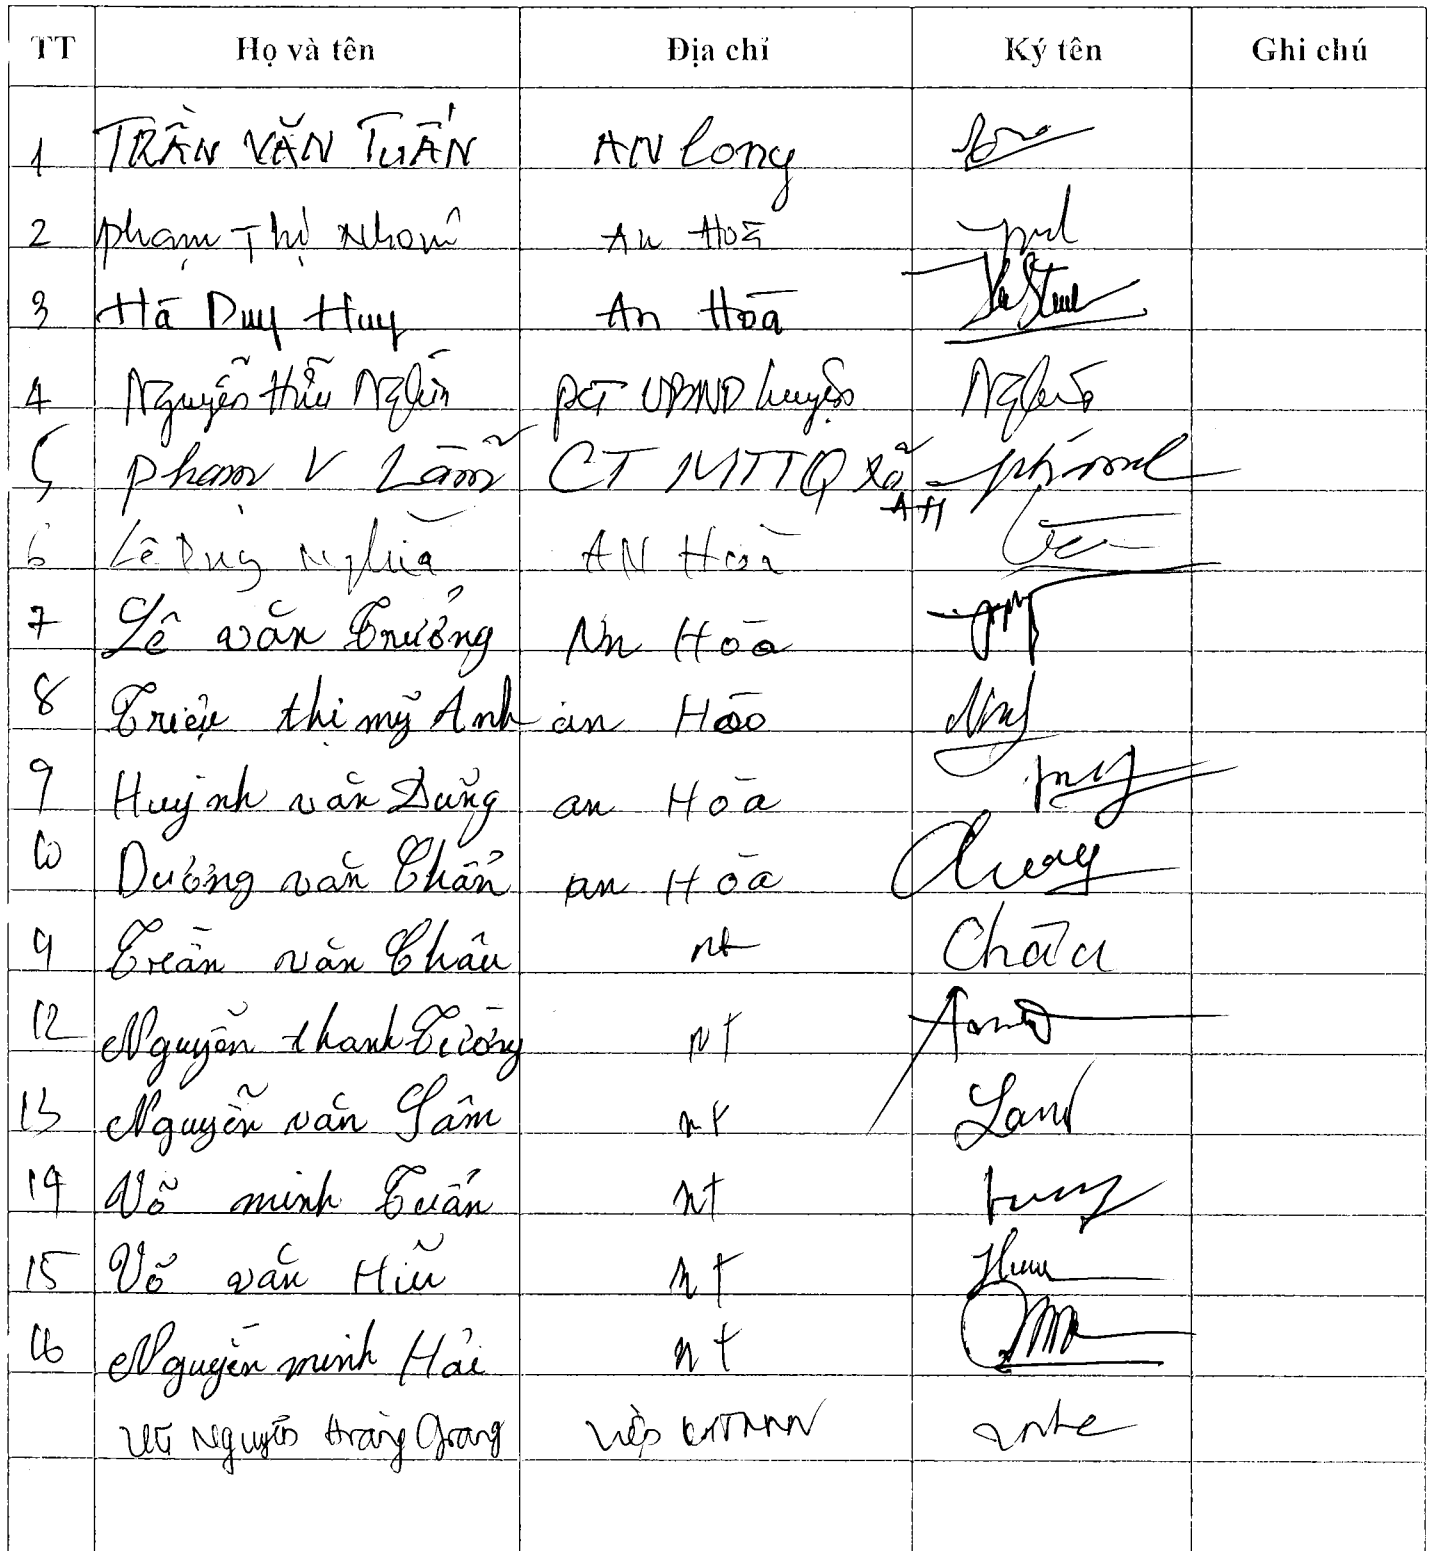 TT Họ và tên Địa chỉ Ký tên Ghi chú
1 TRẦN VĂN TUẤN AN Long
2 Phạm Thị An Hoà
3 Hà Duy Huy An Hòa
4 Nguyễn Hữu PCT UBND huyện
5 Phạm V Lãm CT MTTQ xã AH
6 Lê Duy Nghĩa AN Hoà
7 Lê văn Trưởng An Hòa
8 Triệu thị mỹ Anh an Hòa
9 Huỳnh văn Dũng an Hòa
10 Dương văn Chẩn an Hòa
11 Trần văn Châu nt Châu
12 Nguyễn thanh Tường nt
13 Nguyễn văn Lâm nt
14 Võ minh Tuấn nt
15 Võ văn Hữu nt
16 Nguyễn minh Hải nt
Nguyễn Hoàng Giang